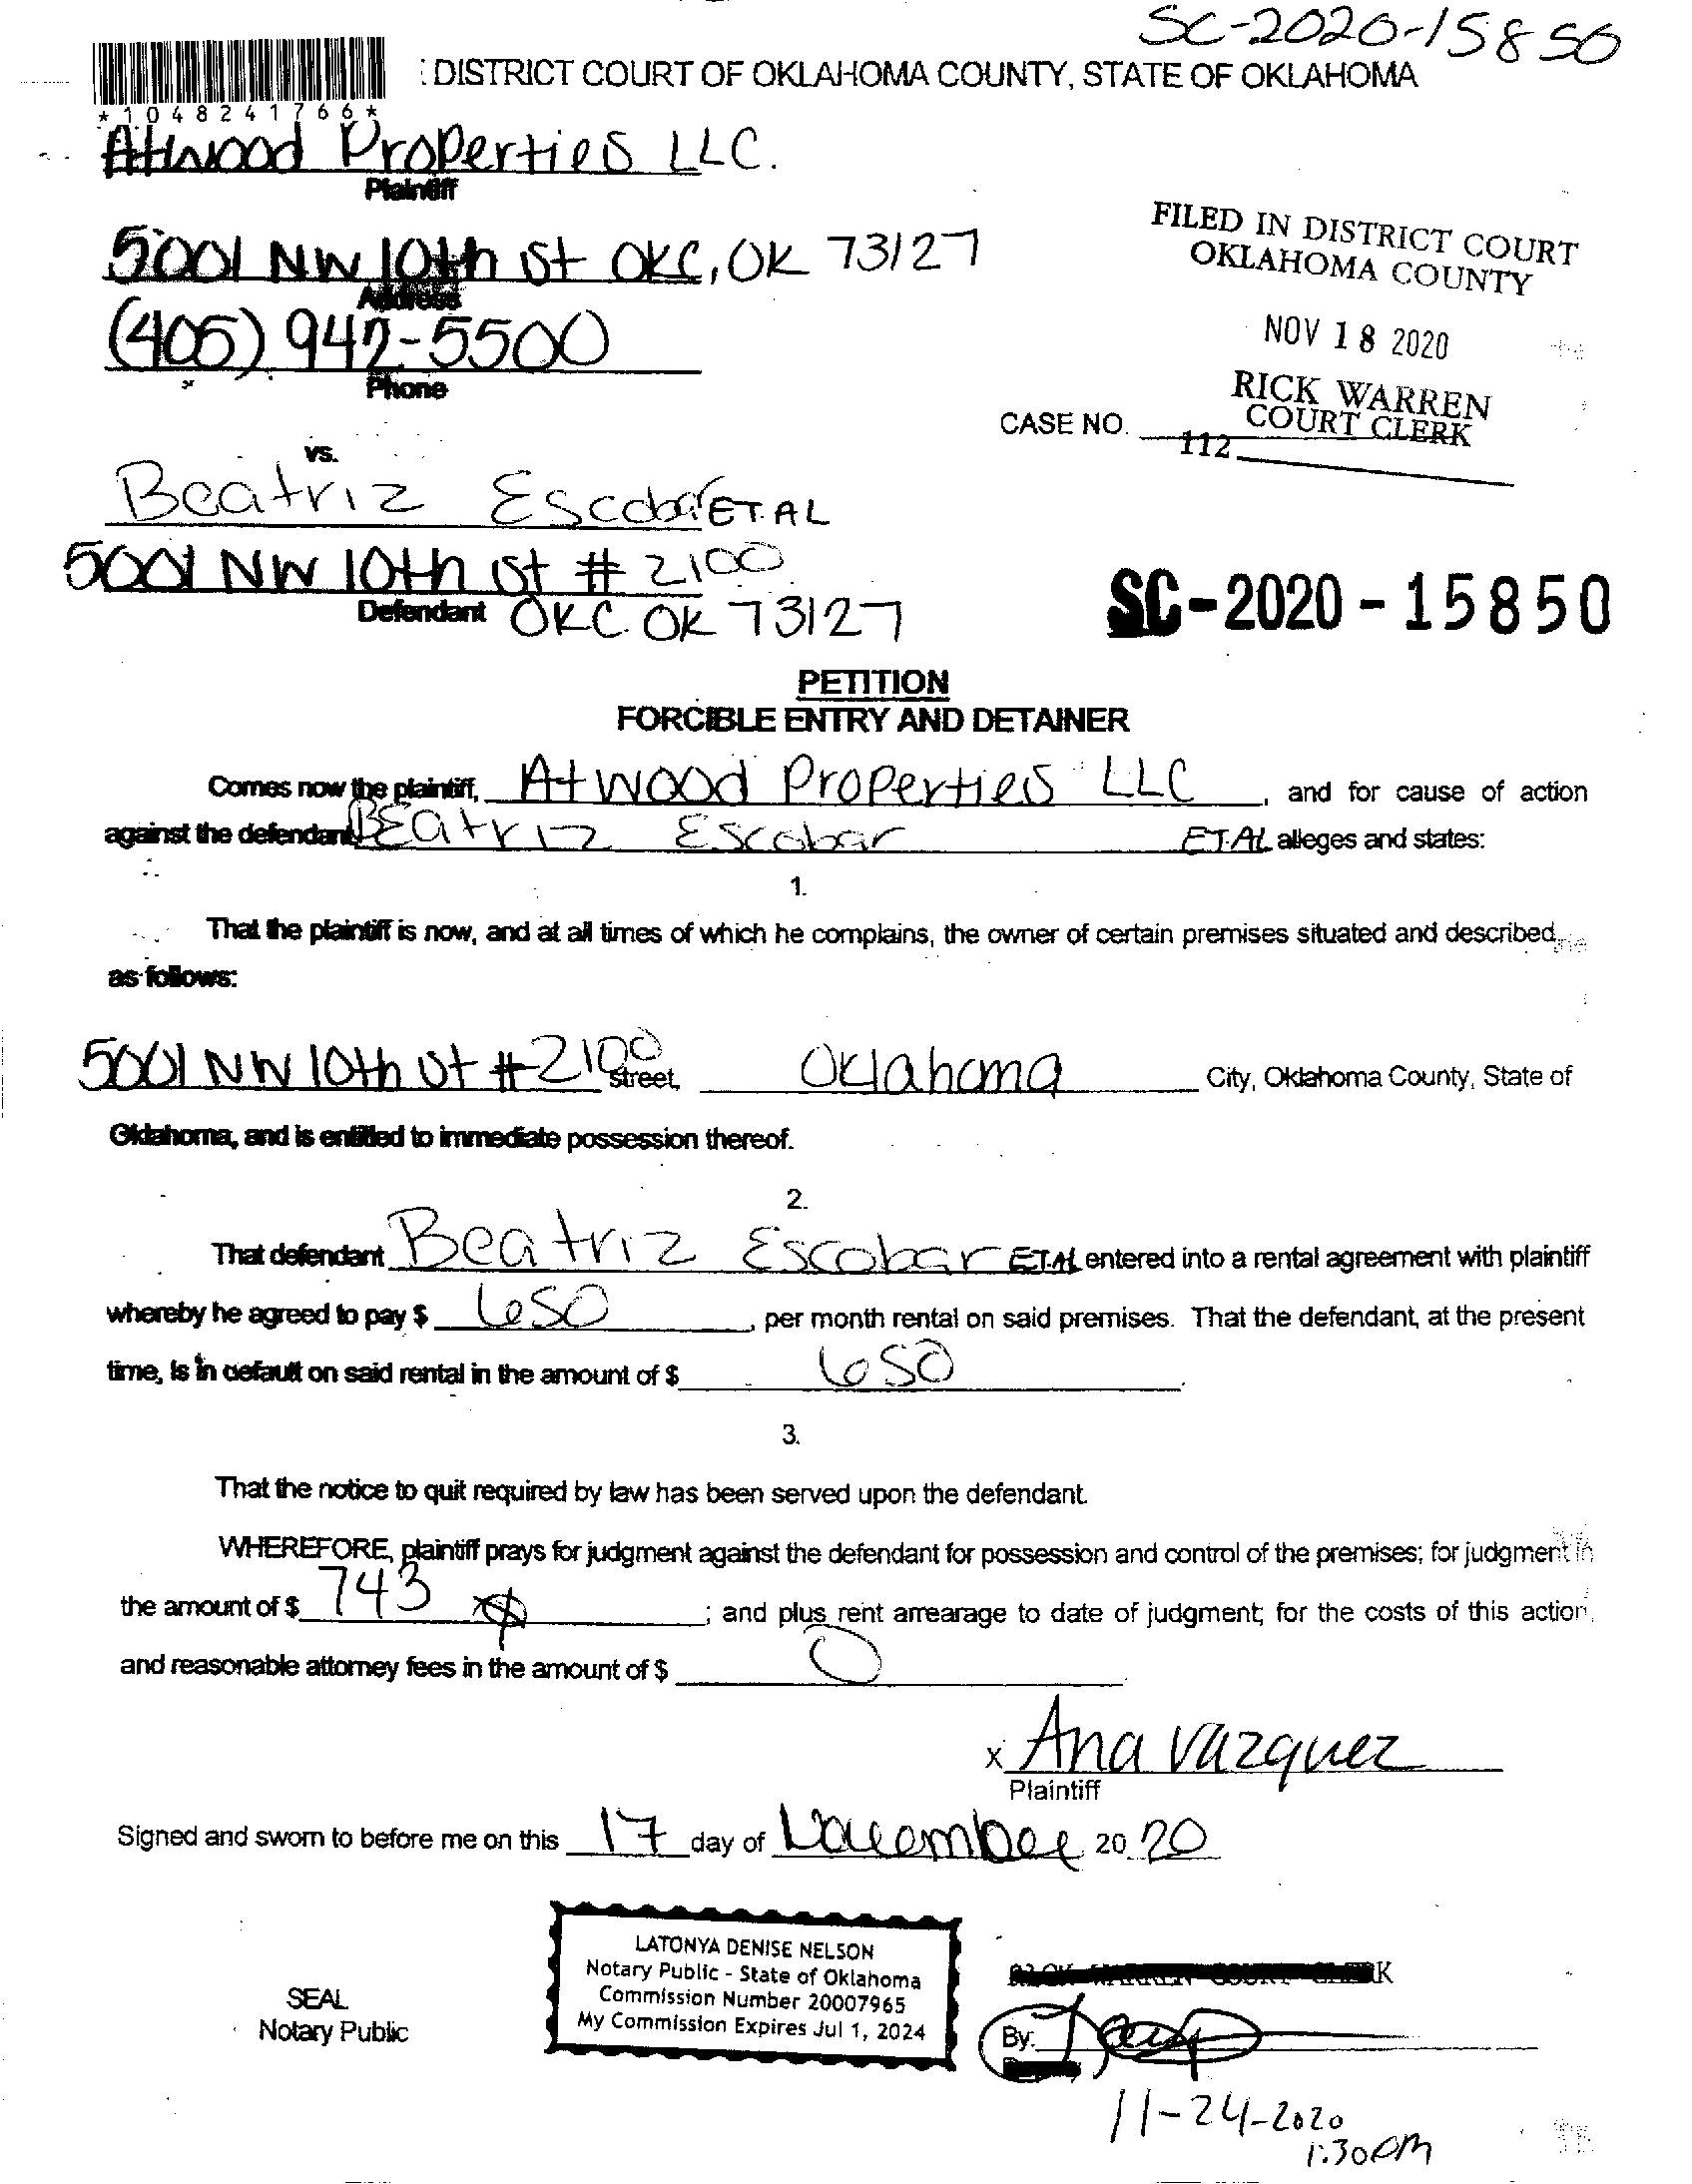 SC-2020-15850
: DISTRICT COURT OF OKLAHOMA COUNTY, STATE OF OKLAHOMA
*1048241766*
Atwood Properties LLC.
Plaintiff
5001 NW 10th St OKC, OK 73127
Address
(405) 942-5500
Phone
FILED IN DISTRICT COURT
OKLAHOMA COUNTY
NOV 18 2020
RICK WARREN
COURT CLERK
CASE NO.
112
vs.
Beatriz Escobar ET AL
5001 NW 10th St # 2100
Defendant OKC OK 73127
SC-2020-15850
PETITION
FORCIBLE ENTRY AND DETAINER
Comes now the plaintiff, Atwood Properties LLC, and for cause of action
against the defendant, BEatriz Escobar ET.AL alleges and states:
1.
That the plaintiff is now, and at all times of which he complains, the owner of certain premises situated and described
as follows:
5001 NW 10th St #2100 Street, Oklahoma City, Oklahoma County, State of
Oklahoma, and is entitled to immediate possession thereof.
2.
That defendant Beatriz Escobar ET.AL entered into a rental agreement with plaintiff
whereby he agreed to pay $ 650, per month rental on said premises. That the defendant, at the present
time, is in default on said rental in the amount of $ 650.
3.
That the notice to quit required by law has been served upon the defendant.
WHEREFORE, plaintiff prays for judgment against the defendant for possession and control of the premises; for judgment in
the amount of $ 743; and plus rent arrearage to date of judgment; for the costs of this action,
and reasonable attorney fees in the amount of $ 0
x Ana Vazquez
Plaintiff
Signed and sworn to before me on this 17 day of November 2020
LATONYA DENISE NELSON
Notary Public - State of Oklahoma
Commission Number 20007965
My Commission Expires Jul 1, 2024
SEAL
Notary Public
RICK WARREN COURT CLERK
By:
11-24-2020
1:30PM